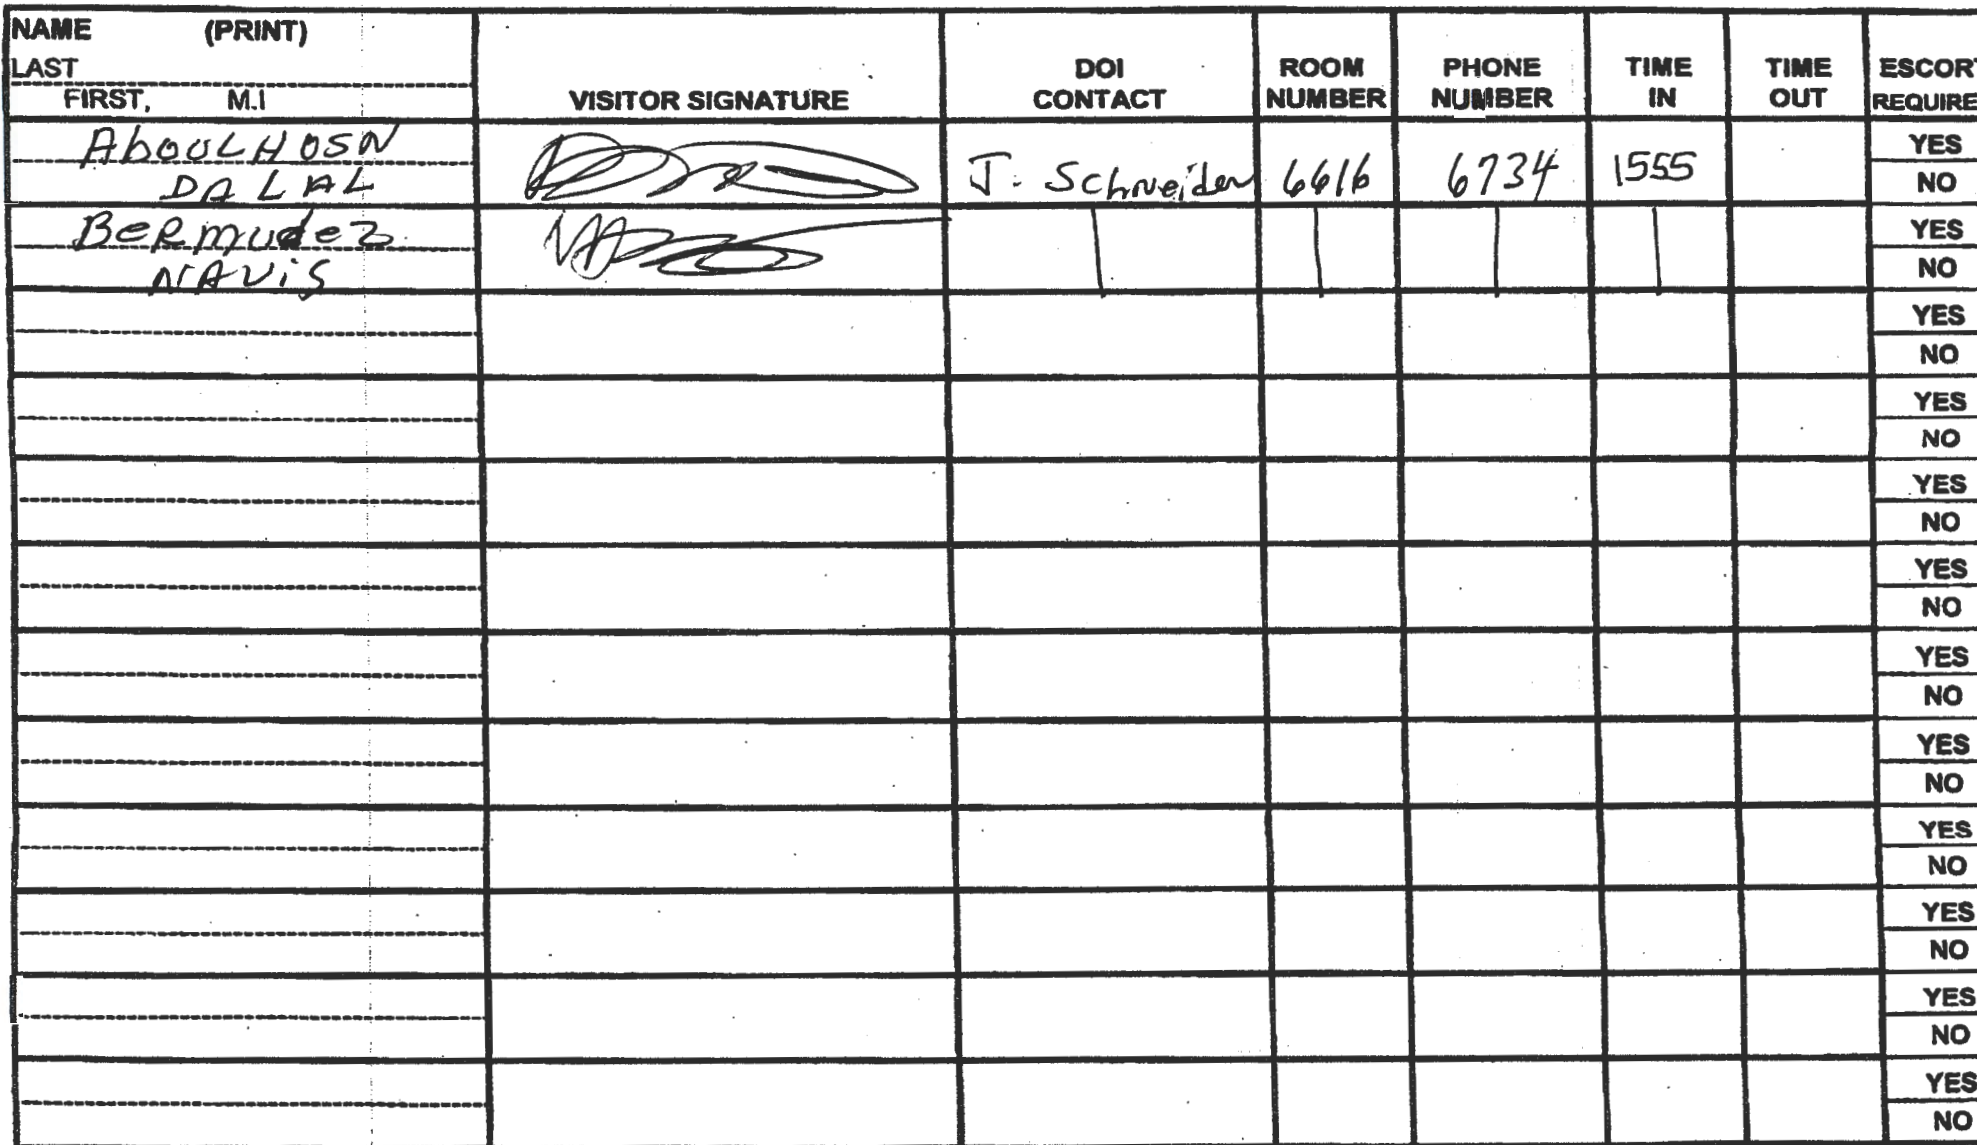 NAME (PRINT)
LAST
FIRST, M.I
VISITOR SIGNATURE
DOI CONTACT
ROOM NUMBER
PHONE NUMBER
TIME IN
TIME OUT
ESCORT REQUIRE
AbOULHOSN
DALAL
J. Schneider 6616 6734 1555
YES
NO
BeRmudez
NAViS
YES
NO
YES
NO
YES
NO
YES
NO
YES
NO
YES
NO
YES
NO
YES
NO
YES
NO
YES
NO
YES
NO